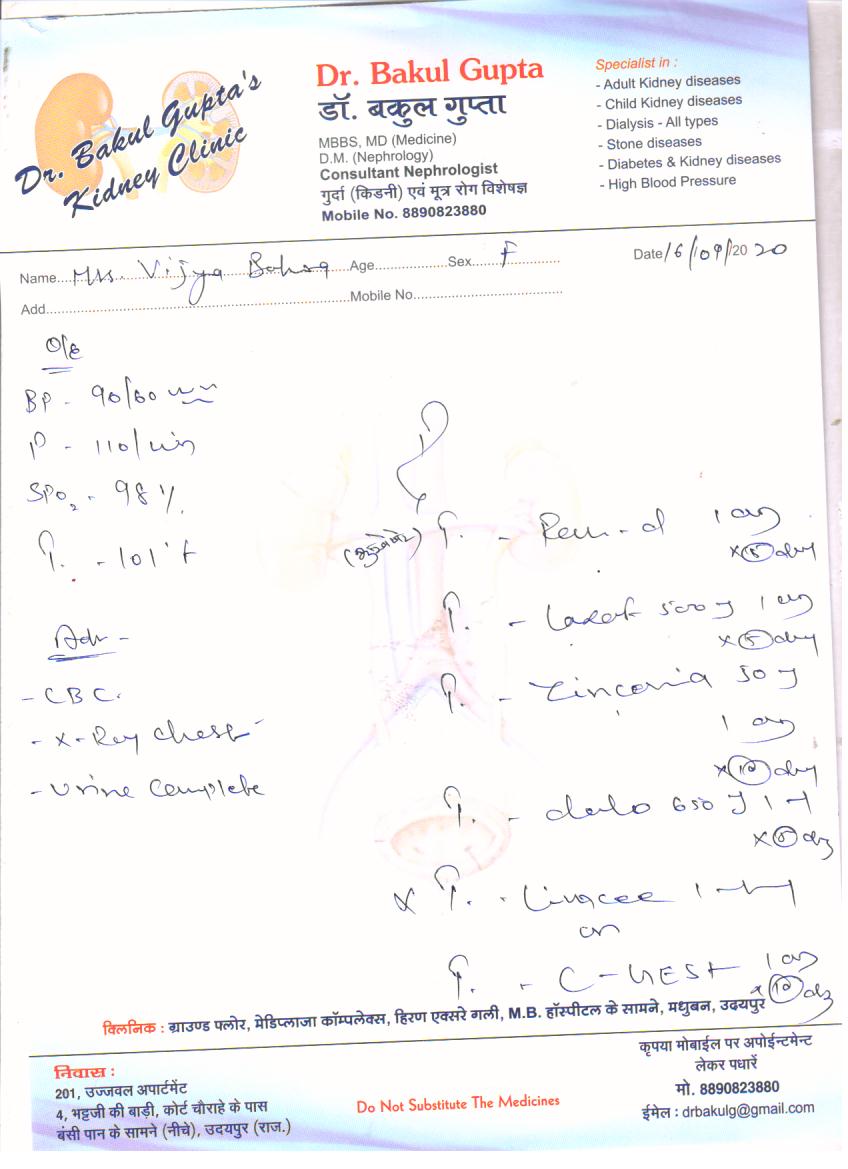 Dr. Bakul Gupta's
Kidney Clinic
Dr. Bakul Gupta
डॉ. बकुल गुप्ता
MBBS, MD (Medicine)
D.M. (Nephrology)
Consultant Nephrologist
गुर्दा (किडनी) एवं मूत्र रोग विशेषज्ञ
Mobile No. 8890823880
Specialist in :
- Adult Kidney diseases
- Child Kidney diseases
- Dialysis - All types
- Stone diseases
- Diabetes & Kidney diseases
- High Blood Pressure
Name....Mrs. Vijya ....Age....Sex....F.... Date 16/09/2020
Add....Mobile No....
O/E
BP - 90/60
P - 110/min
SPO2 - 98 %
T. - 101°F
Adv -
- CBC.
- X-Ray Chest
- Urine Complete
T. -
x 5 day
T. - 500
x 5 day
T. - Zinconia 50
x 10 day
T. - dolo 650
x 5 day
T. - Limcee
or
T. - C-
x 10
क्लिनिक : ग्राउण्ड फ्लोर, मेडिप्लाजा कॉम्पलेक्स, हिरण एक्सरे गली, M.B. हॉस्पीटल के सामने, मधुबन, उदयपुर
निवास :
201, उज्जवल अपार्टमेंट
4, भट्टजी की बाड़ी, कोर्ट चौराहे के पास
बंसी पान के सामने (नीचे), उदयपुर (राज.)
Do Not Substitute The Medicines
कृपया मोबाईल पर अपोईन्टमेन्ट
लेकर पधारें
मो. 8890823880
ईमेल : drbakulg@gmail.com